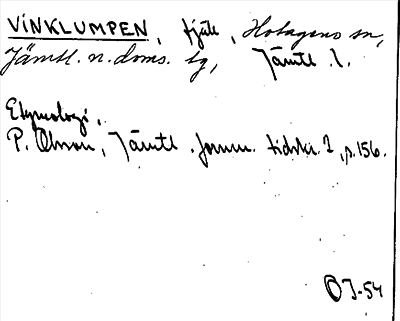 VINKLUMPEN, fjäll, Hotagens sn,
Jämtl. n. doms. tg, Jämtl. l.
Etymologi,
P. Olsson, Jämtl. fornm. tidskr. 2, s. 156.
OJ-54